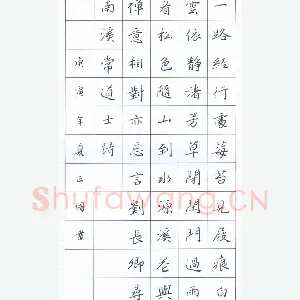 一路經行處莓苔見履痕白
雲依靜渚芳草閉閒門過雨
看松色隨山到水源溪花與
禪意相對亦忘言劉長卿尋
南溪常道士詩
庚寅年夏正書
Shufawang.CN